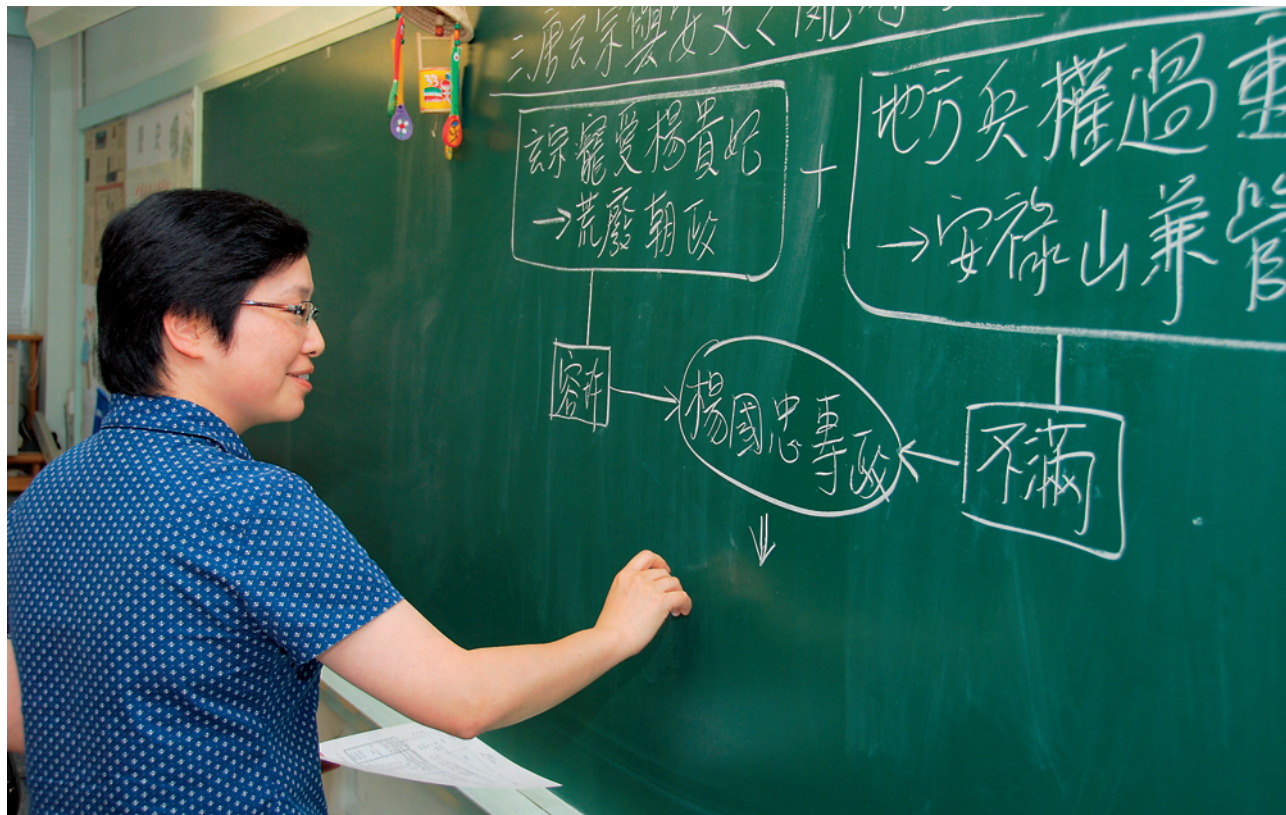 三唐玄宗與安史之亂
玄宗寵愛楊貴妃
→荒廢朝政
+
地方兵權過重
→安祿山兼管
容許
楊國忠專政
不滿